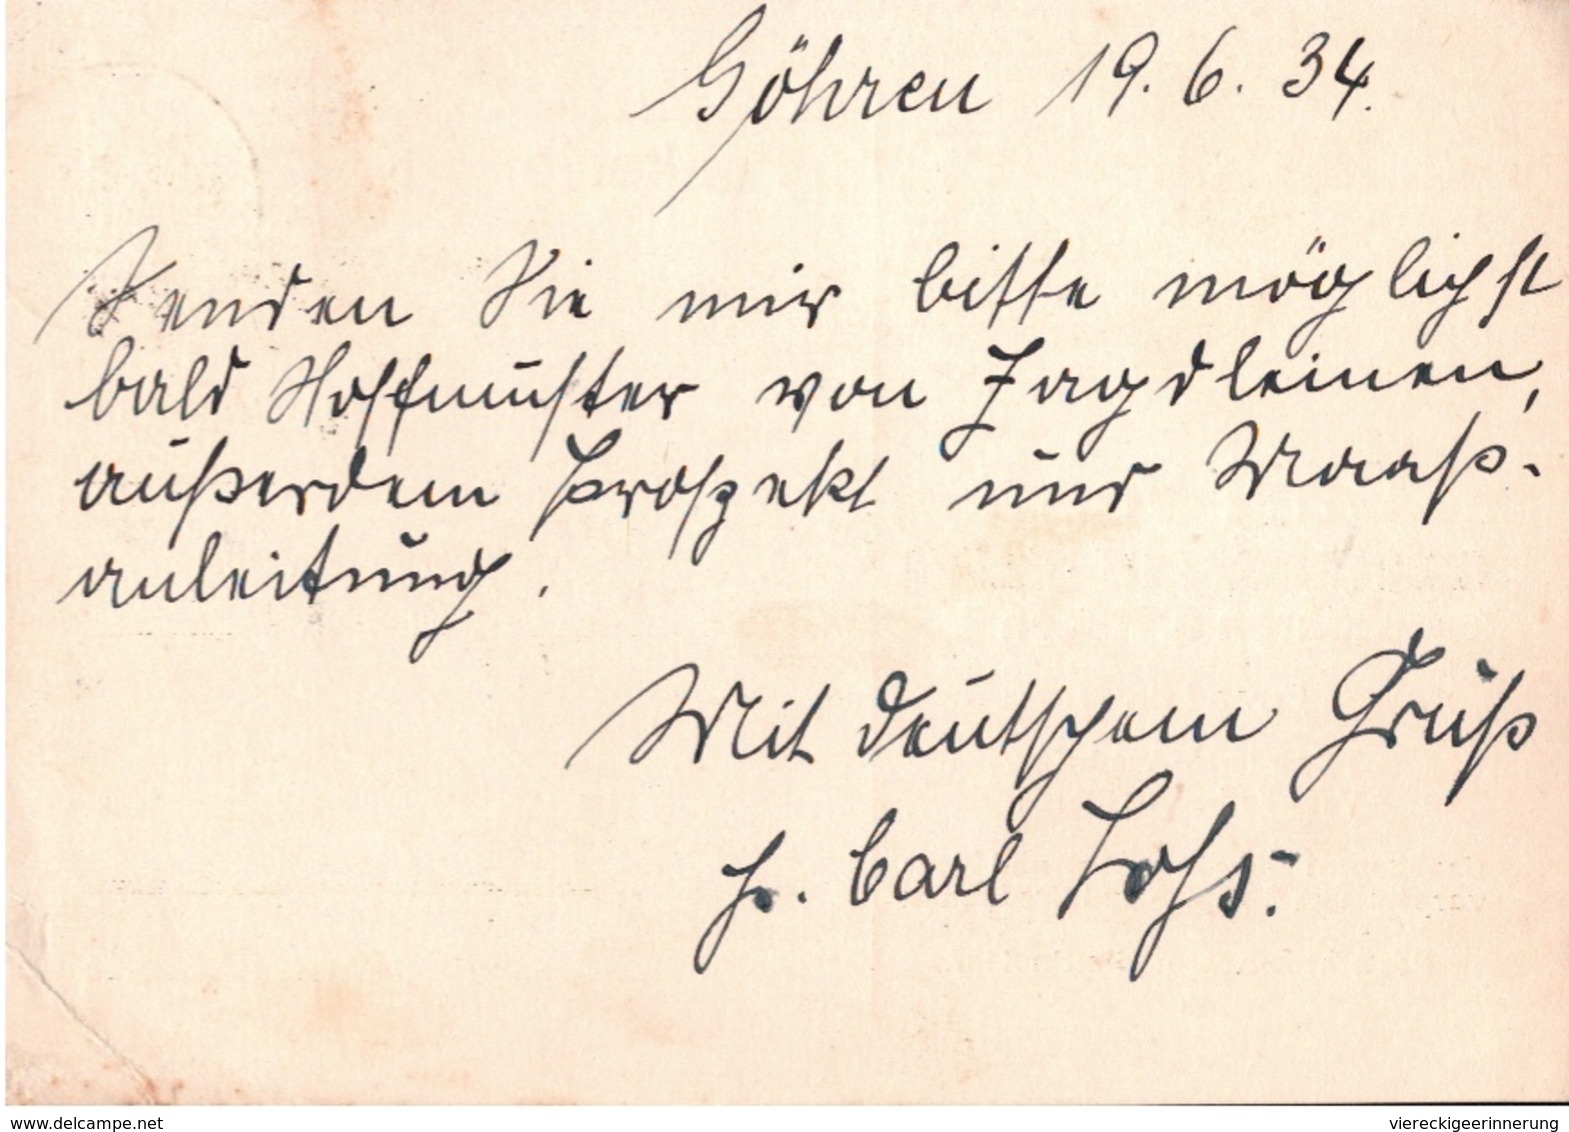 Göhren 19. 6. 34.
Senden Sie mir bitte möglichst
bald Stoffmuster von Jagdleinen,
außerdem Prospekt und Maaß-
anleitung.
Mit deutschem Gruß
Carl
www.delcampe.net
viereckigeerinnerung